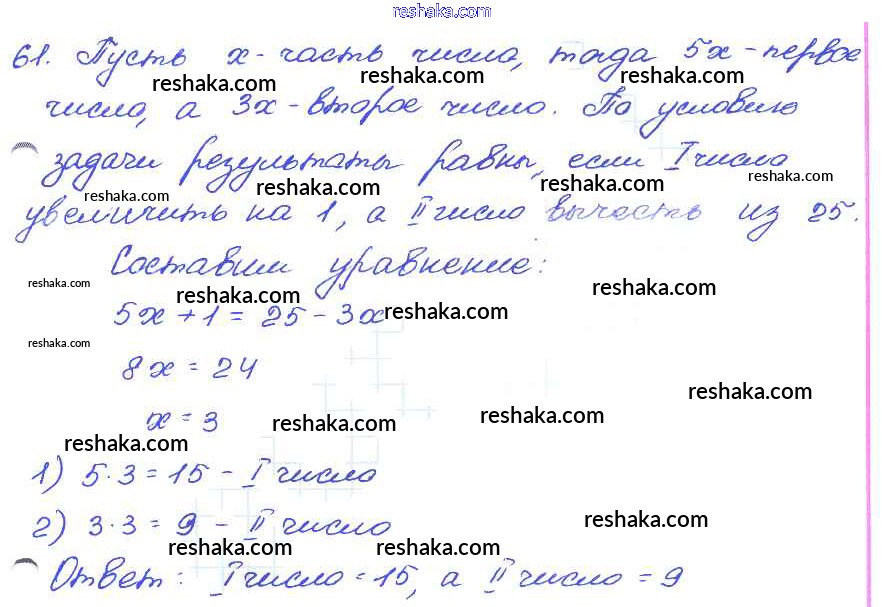 reshaka.com
61. Пусть x - часть числа, тогда 5x - первое
reshaka.com reshaka.com reshaka.com
число, а 3x - второе число. По условию
задачи результаты равны, если I число
reshaka.com reshaka.com reshaka.com reshaka.com
увеличить на 1, а II число вычесть из 25.
Составим уравнение:
reshaka.com reshaka.com reshaka.com
5x + 1 = 25 - 3x reshaka.com
reshaka.com
8x = 24
reshaka.com
x = 3 reshaka.com reshaka.com
reshaka.com
1) 5·3 = 15 - I число
2) 3·3 = 9 - II число reshaka.com
reshaka.com reshaka.com
Ответ: I число = 15, а II число = 9